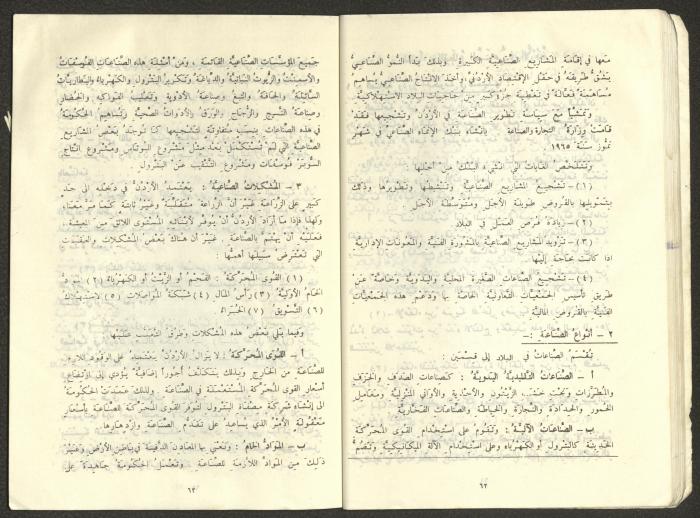 معها في إقامة المشاريع الصناعية الكبيرة . وبذلك بدأ النمو الصناعي
يشق طريقه في حقل الإقتصاد الأردني ، وأخذ الانتاج الصناعي يساهم
مساهمة فعالة في تغطية جزء كبير من حاجيات البلاد الاستهلاكية .
وتمشيا مع سياسة تطوير الصناعة في الأردن وتشجيعها فقد
قامت وزارة التجارة والصناعة بانشاء بنك الإنماء الصناعي في شهر
تموز سنة ١٩٦٥
وتتلخص الغايات التي انشىء البنك من أجلها
(١) – تشجيع المشاريع الصناعية وتنشيطها وتطويرها وذلك
بتمويلها بالقروض طويلة الأجل ومتوسطة الأجل .
(٢) – زيادة فرص العمل في البلاد
(٣) – تزويد المشاريع الصناعية بالمشورة الفنية والمعونات الإدارية
اذا كانت بحاجة إليها .
(٤) – تشجيع الصناعات الصغيرة المحلية واليدوية وخاصة عن
طريق تأسيس الجمعيات التعاونية الخاصة بها ودعم هذه الجمعيات
الفنية بالقروض المالية
٢ – أنواع الصناعة :–
تقسم الصناعات في البلاد إلى قسمين :
أ – الصناعات التقليدية اليدوية : كصناعات الصدف والخزف
والمطرزات ونحت خشب الزيتون والأحذية والأواني المنزلية ومعامل
الخمور والحدادة والنجارة والخياطة والصناعات الفخارية
ب – الصناعات الآلية : وتقوم على استخدام القوى المحركة
الحديثة كالبترول أو الكهرباء وعلى استخدام الآلة الميكانيكية وتضم
٦٢
جميع المؤسسات الصناعية القائمة ، ومن أمثلة هذه الصناعات الفوسفات
والاسمنت والزيوت النباتية والدباغة وتكرير البترول والكهرباء والبطاريات
السائلة والجافة والتبغ وصناعة الأدوية وتعليب الفواكه والخضار
وصناعة النسيج والزجاج والورق والأدوات الصحية وتساهم الحكومة
في هذه الصناعات بنسب متفاوتة لتشجيعها كما توجد بعض المشاريع
الصناعية التي لم تستكمل بعد مثل مشروع البوتاس ومشروع انتاج
السوبر فوسفات ومشروع التنقيب عن البترول
٣ – المشكلات الصناعية : يعتمد الأردن في دخله إلى حد
كبير على الزراعة غير أن الزراعة متقلبة وغير ثابتة كما مر معنا ،
ولهذا فإذا ما أراد الأردن أن يوفر لأبنائه المستوى اللائق من المعيشة ،
فعليه أن يهتم بالصناعة . غير أن هناك بعض المشكلات والعقبات
التي تعترض سبيلها أهمها :
(١) القوى المحركة : الفحم أو الزيت أو الكهرباء (٢) المواد
الخام الأولية (٣) رأس المال (٤) شبكة المواصلات (٥) الاستهلاك
(٦) التسويق (٧) الخبراء
وفيما يلي بعض هذه المشكلات وطرق التغلب عليها
أ – القوى المحركة : لا يزال الأردن يعتمد على الوقود اللازم
للصناعة من الخارج وبذلك يتكلف أجورا إضافية يؤدي إلى ارتفاع
أسعار القوى المحركة المستعملة في الصناعة . ولذلك عمدت الحكومة
إلى إنشاء شركة مصفاة البترول لتوفر القوى المحركة الصناعية بأسعار
معقولة الأمر الذي يساعد على تقدم الصناعة وازدهارها .
ب – المواد الخام : ونعني بها المعادن الدفينة في باطن الأرض وغير
ذلك من المواد اللازمة للصناعة وتعمل الحكومة جاهدة على
٦٣